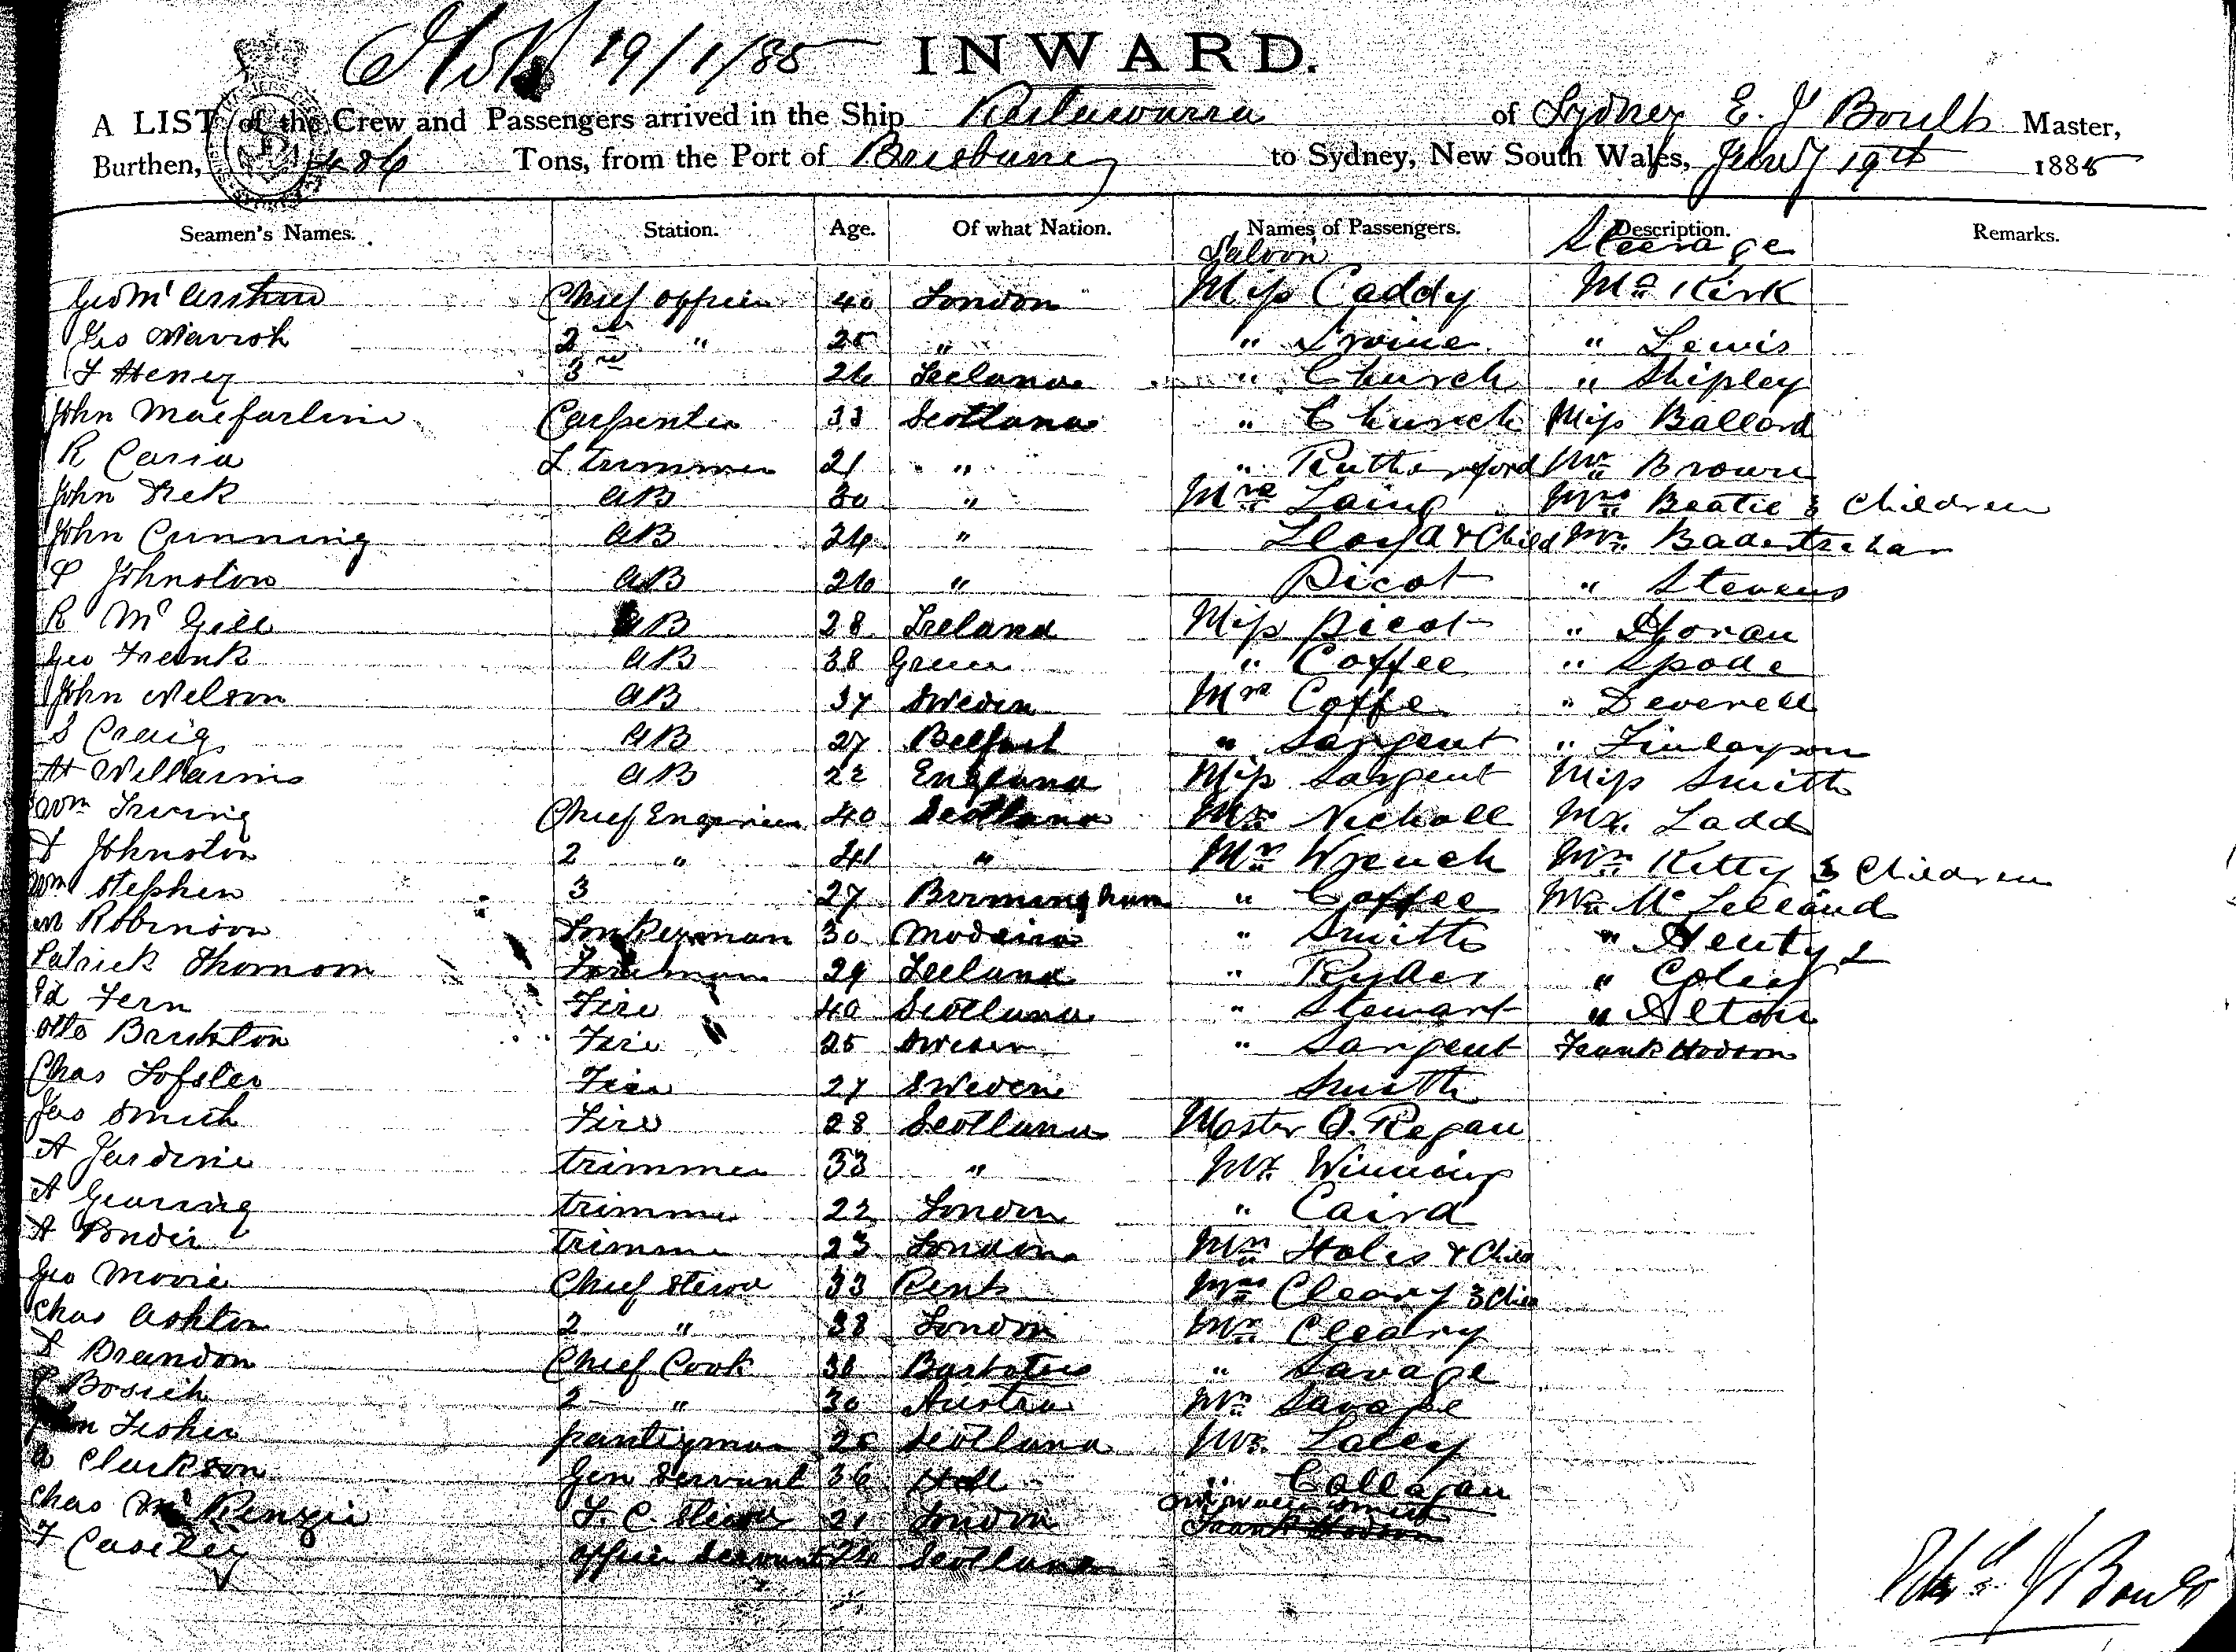 19/1/85 INWARD.
A LIST of the Crew and Passengers arrived in the Ship of Sydney E. J Boult Master,
Burthen, 486 Tons, from the Port of Brisbane to Sydney, New South Wales, 19th 1885
Seamen's Names. Station. Age. Of what Nation. Names of Passengers. Description. Remarks.
Saloon Steerage
Chief officer 40 London Miss Caddy Mr Kirk
2nd " 25 " " Irvine " Lewis
3rd 26 Ireland " Church " Shipley
John Macfarline Carpenter 33 Scotland " Church Miss Ballard
R 21 " " Rutherford Mr Brown
John AB 30 " Mrs Laing Mrs Beatie 3 Children
John Cunning AB 24 " Lloyd & Child Mr
Johnston AB 26 " Picot " Stevens
R Mc Gill AB 28 Ireland Miss Picot " Horan
Geo Frank AB 38 Greece " Coffee " Spode
John Nelson AB 37 Sweden Mrs Coffe " Deverell
S Craig AB 27 Belfast " Sargent " Finlayson
H Williams AB 22 England Miss Sargent Miss Smith
Wm Irving Chief Engineer 40 Scotland Mr Nicholl Mr. Ladd
Johnston 2 " 41 " Mr Wrench Kitty 3 Children
Wm Stephen 3 27 Birmingham " Coffee Mr Mc Lelland
Robinson 30 Madeira " Smith " Henty
Patrick Thomson Fireman 29 Ireland " Ryder " Coley
Fern Fire 40 Scotland " Stewart " Alton
Otto Fire 25 Sweden " Sargent Frank Hodson
Chas Lofsler Fire 27 Sweden Smith
Jas Smith Fire 28 Scotland Master O. Regan
A Jardine trimmer 33 " Mr. Winning
A trimmer 22 London " Caird
A trimmer 23 London & Child
Geo Chief Stewd 33 Kent Mrs Cleary 3 Chil
Chas Ashton 2 " 38 London Mr Cleary
Brandon Chief Cook " Savage
2 " 30 Austria Savage
Fisher pantryman Scotland Mr. Lacey
Clarkson Gen Servant 36 " Callagan
Chas Mc Kenzie 21 London Frank Hodson
F officer Servant Scotland
J Boult